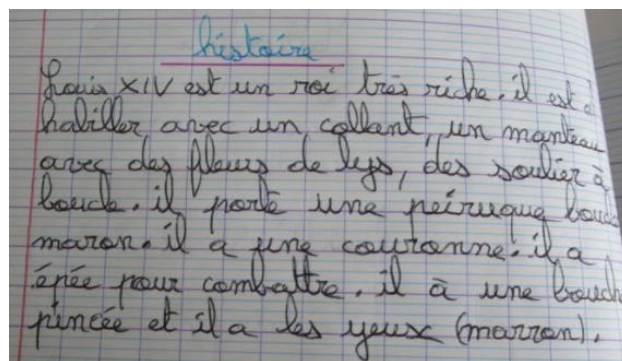 histoire
Louis XIV est un roi très riche. il est
habiller avec un collant, un manteau
avec des fleurs de lys, des soulier à
boucle. il porte une péiruque
maron. il a une couronne. il a
épée pour combattre. il à une
pincée et il a les yeux (marron).